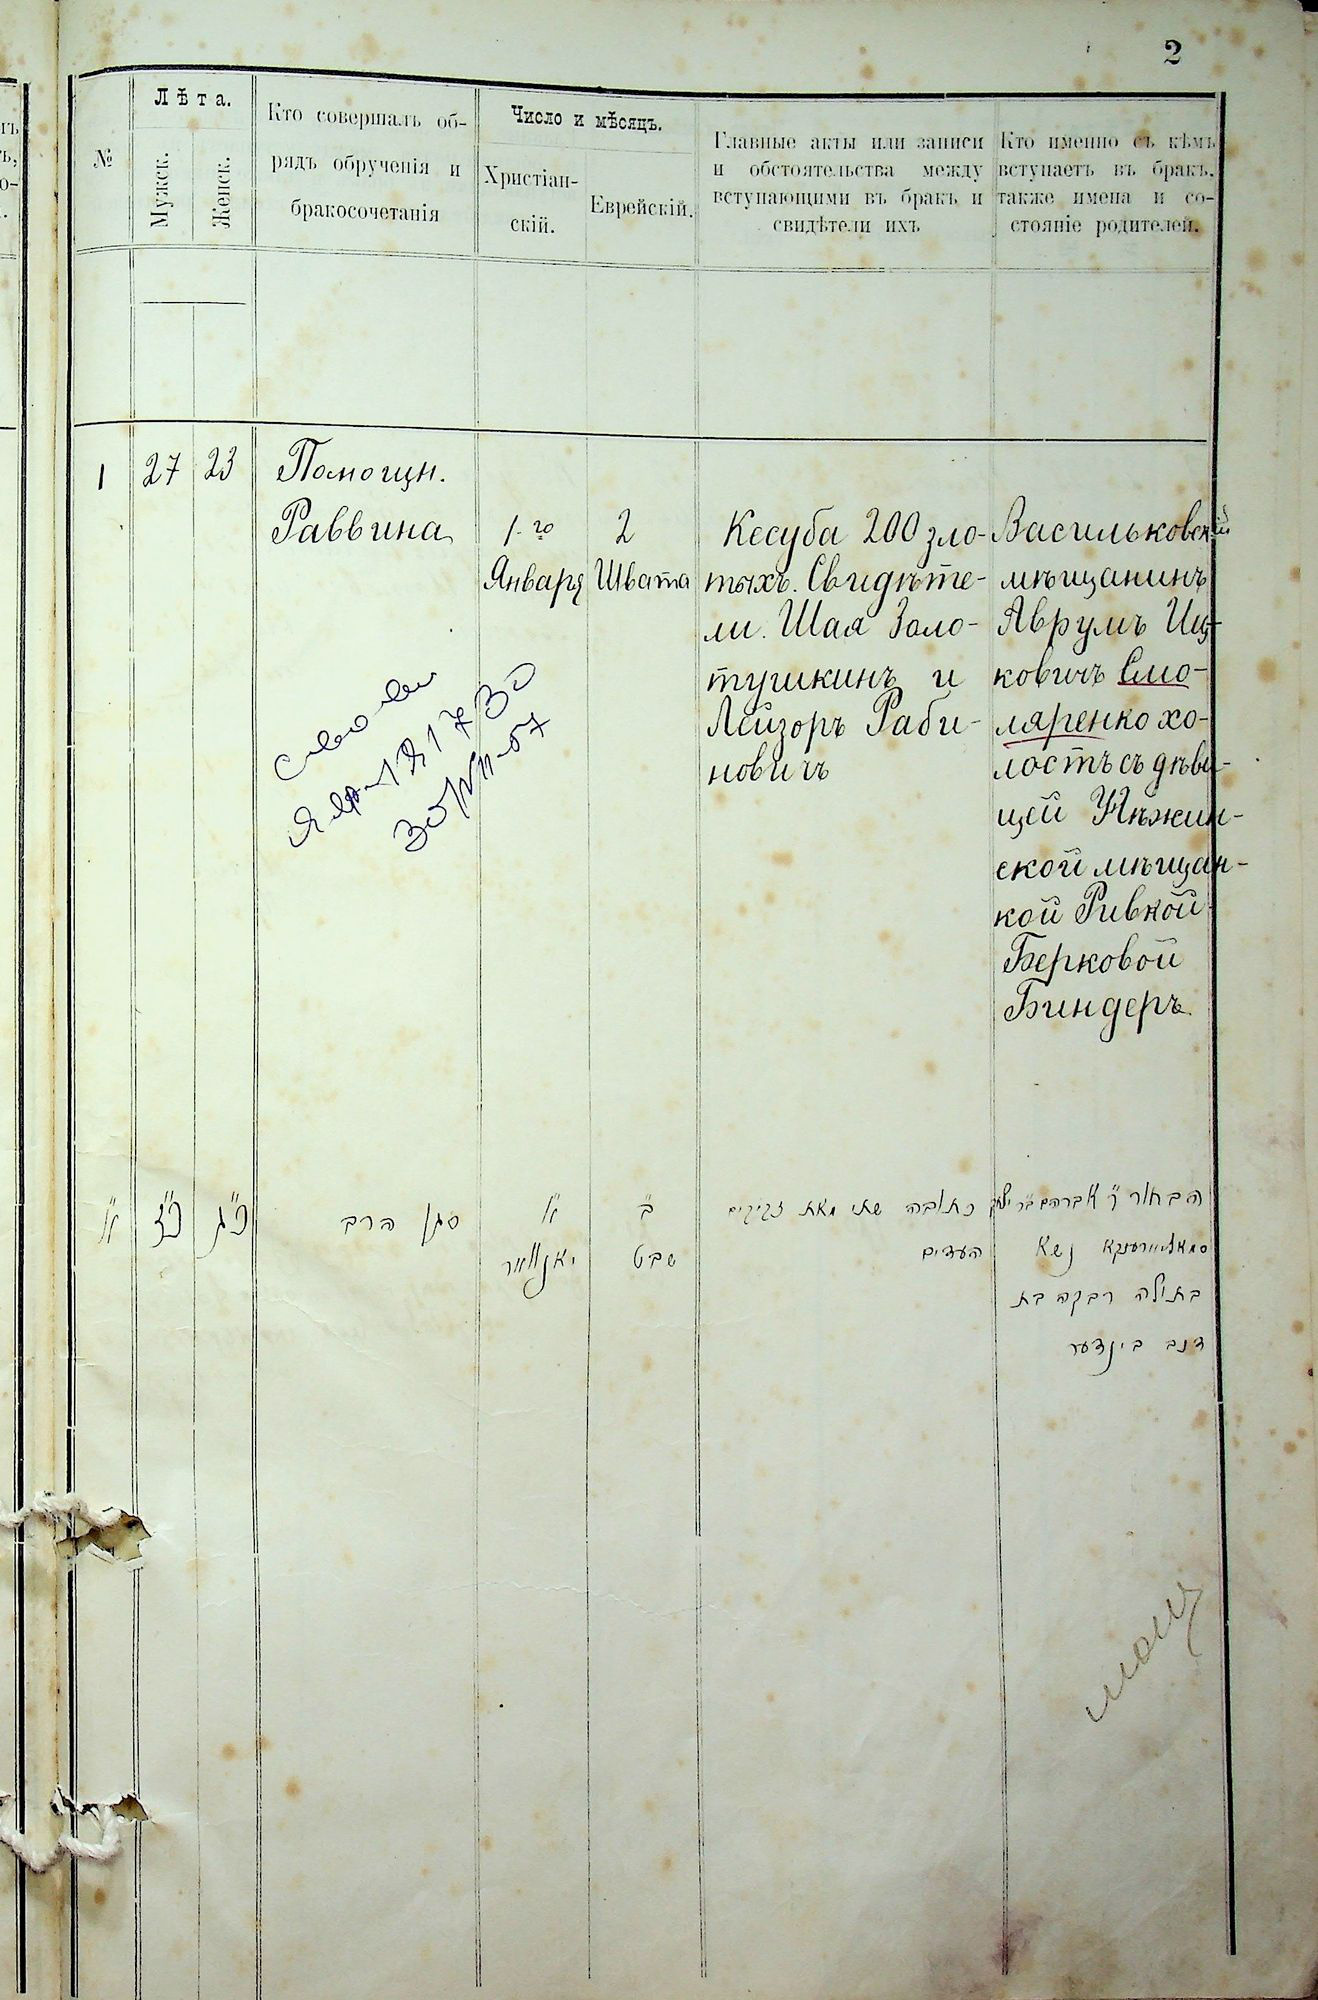 2
№
Лѣта.
Мужск.
Женск.
Кто совершалъ об-
рядъ обрученія и
бракосочетанія
Число и мѣсяцъ.
Христіан-
скій.
Еврейскій.
Главные акты или записи
и обстоятельства между
вступающими въ бракъ и
свидѣтели ихъ
Кто именно съ кѣмъ
вступаетъ въ бракъ,
также имена и со-
стояніе родителей.
1
27
23
Помощн.
Раввина
1-го
Января
2
Швата
Кесуба 200 зло-
тыхъ. Свидѣте-
ли. Шая Золо-
тушкинъ и
Лейзоръ Раби-
новичъ
Васильковскій
мѣщанинъ
Аврумъ Иц-
ковичъ Смо-
ляренко хо-
лостъ съ дѣви-
цей Нѣжин-
ской мѣщан-
кой Ривкой
Берковой
Биндеръ
א"
כ"ז
כ"ג
סגן הרב
א"
יאנואר
ב"
שבט
כתובה שתי מאת זקוקים
העדים
הבחור ר' אברהם ב"ר יצחק
נשא
בתולה רבקה בת
דוב בינדער